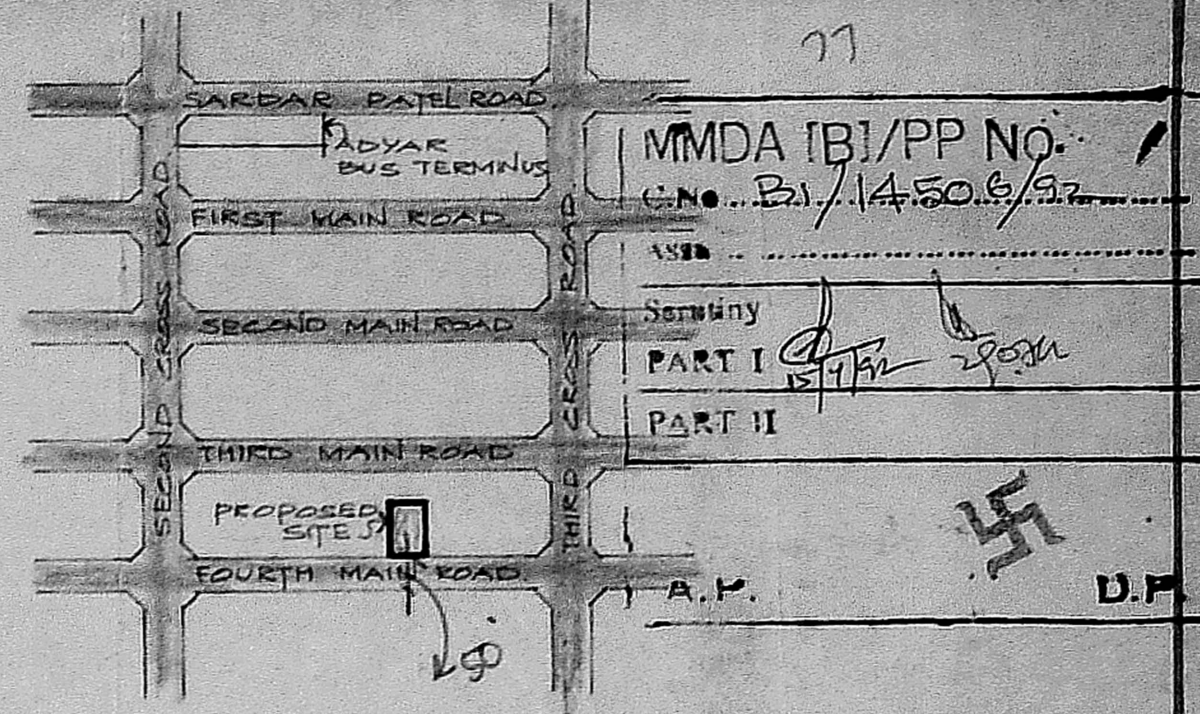 77
SARDAR PATEL ROAD
ADYAR
BUS TERMINUS
FIRST MAIN ROAD
SECOND MAIN ROAD
THIRD MAIN ROAD
PROPOSED
SITE
FOURTH MAIN ROAD
SECOND CROSS ROAD
THIRD CROSS ROAD
MMDA [B]/PP No.
C.No. B1/14506/92
Scrutiny
PART I
PART II
A.P.
D.P.